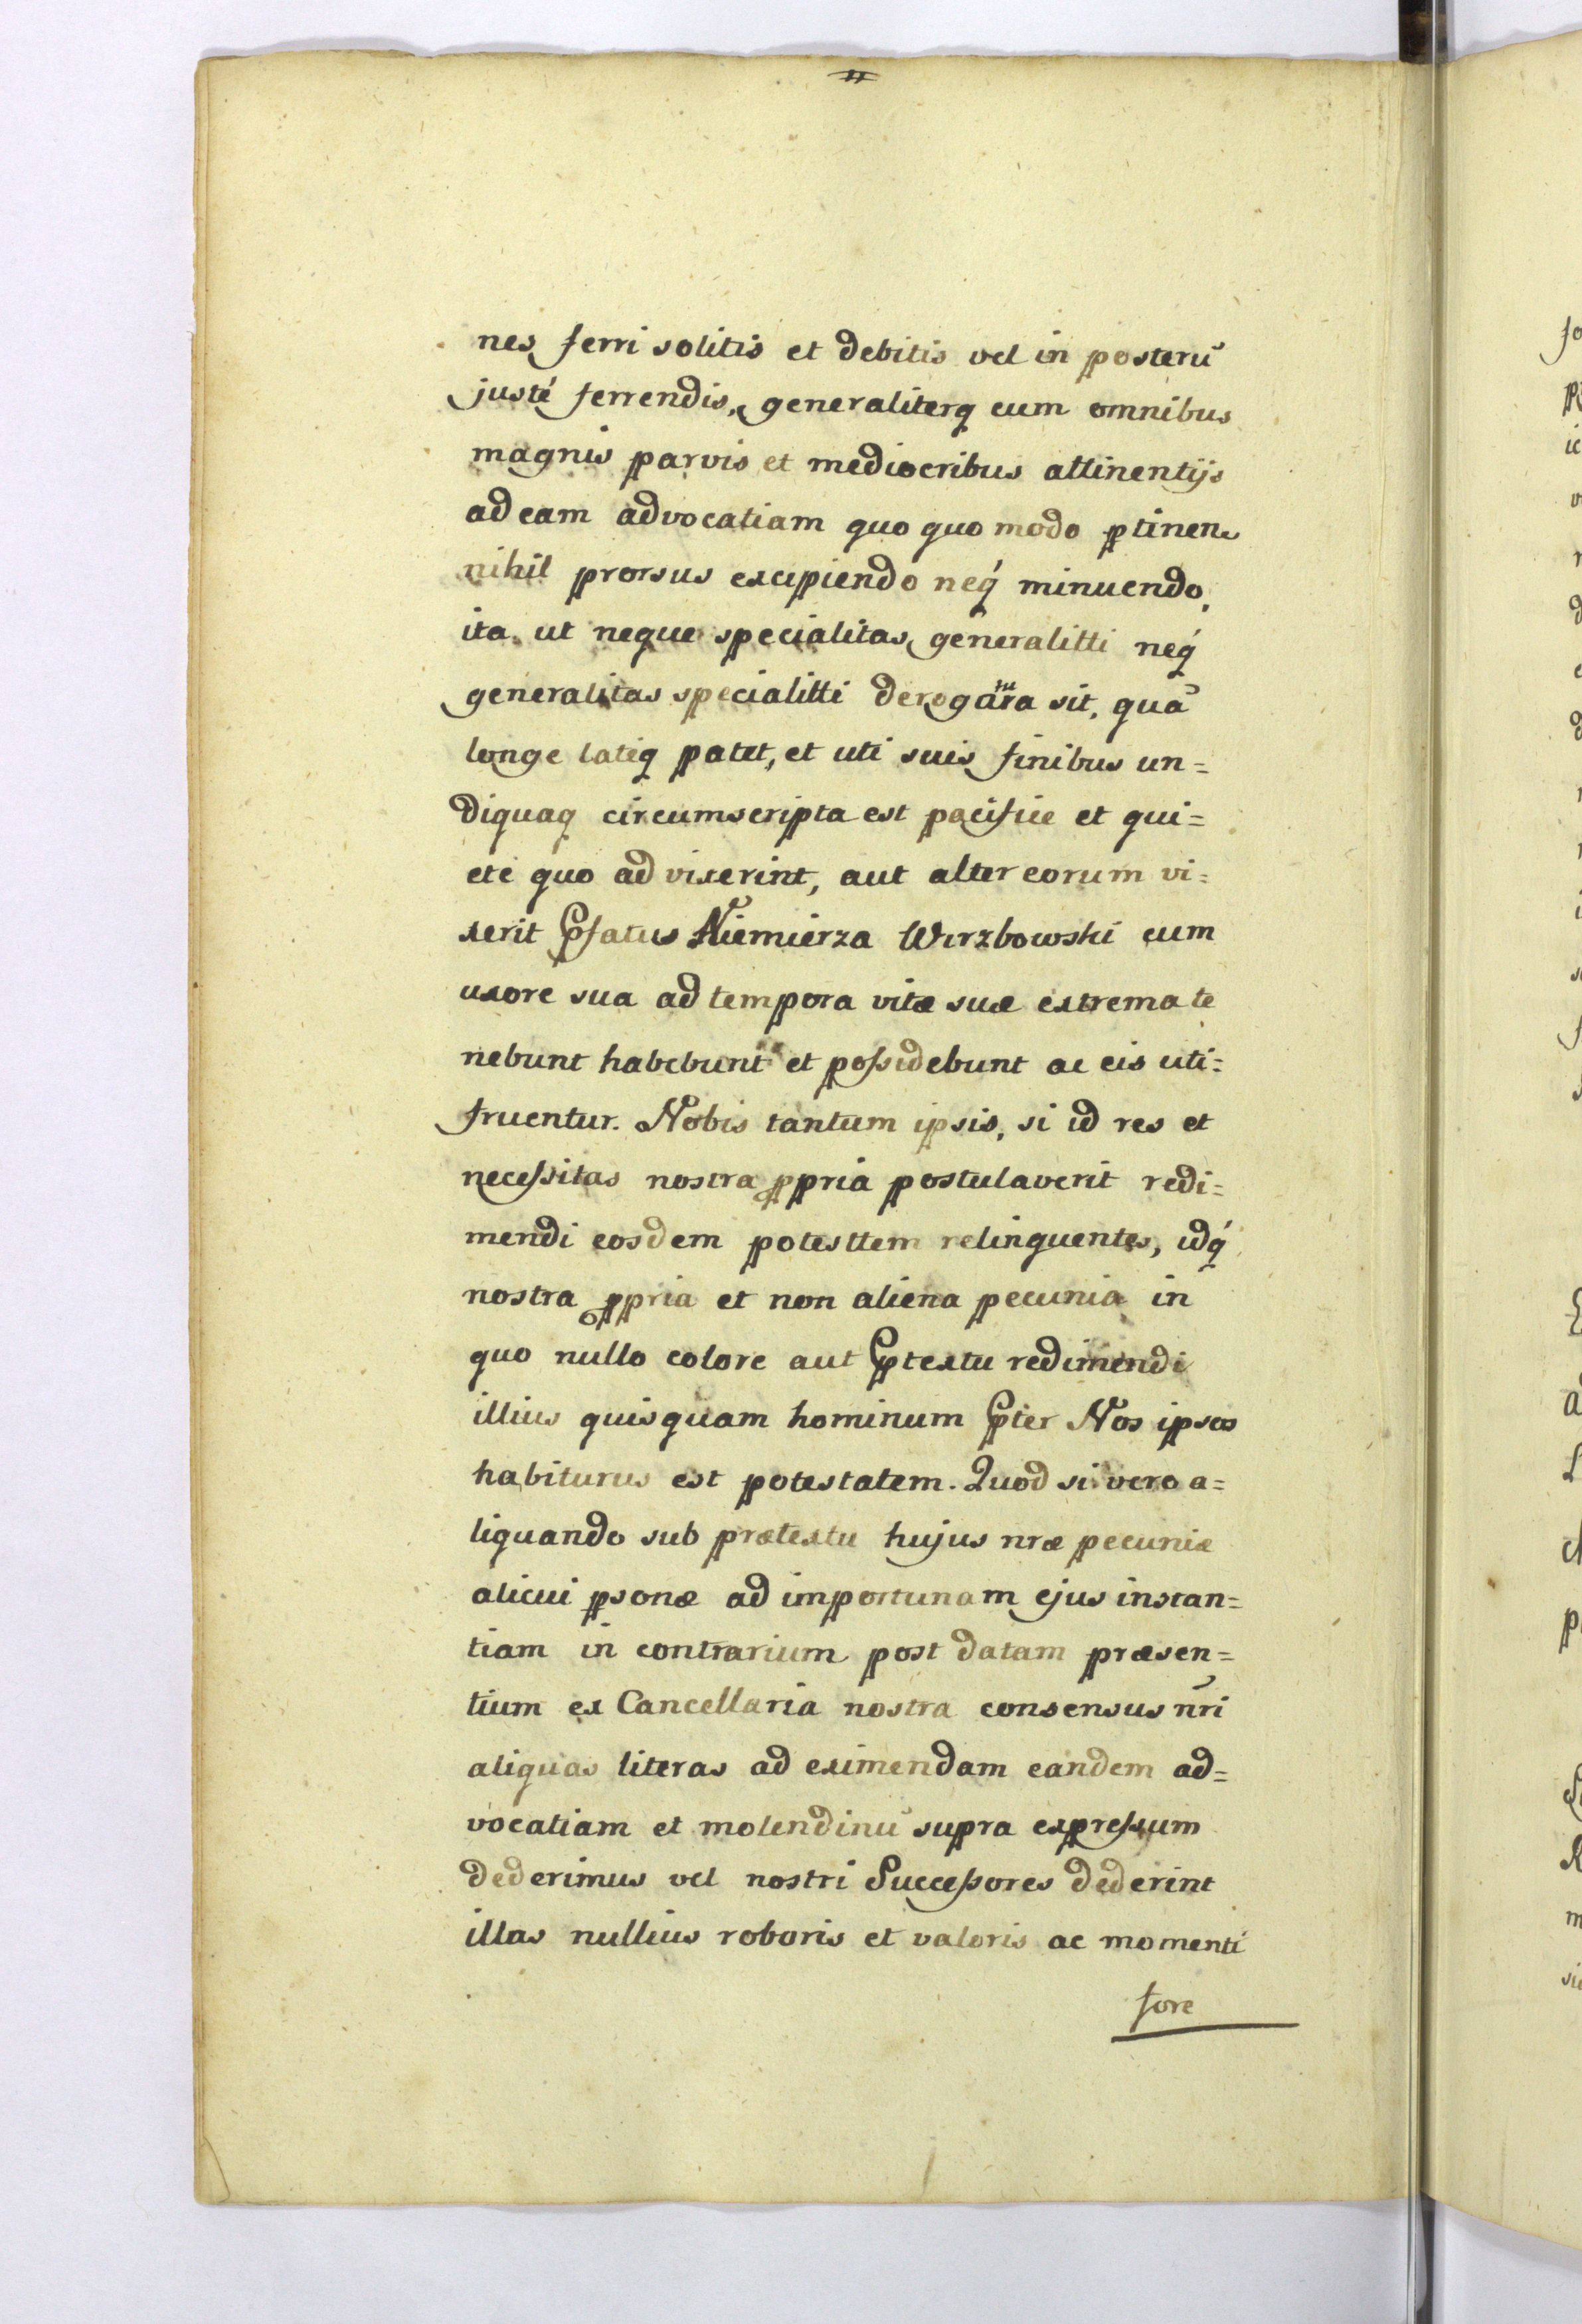 nes ferri solitis et debitis vel in posterū
justé ferrendis, generaliterq cum omnibus
magnis parvis et mediocribus attinentijs
ad eam advocatiam quo quo modo ptinen
nihil prorsus excipiendo neq́ minuendo,
ita ut neque specialitas generalitti neq́
generalitas specialitti derogatura sit, quā
longe lateq patet, et uti suis finibus un=
diquaq circumscripta est pacifice et qui=
ete quo ad vixerint, aut alter eorum vi=
xerit Pfatus Niemierza Wirzbowski cum
uxore sua ad tempora vitæ suæ extrema te
nebunt habebunt et possidebunt ac eis uti=
fruentur. Nobis tantum ipsis, si id res et
necessitas nostra ppria postulaverit redi=
mendi eosdem potesttem relinquentes, idq́
nostra ppria et non aliena pecunia in
quo nullo colore aut Ptextu redimendi
illius quisquam hominum Pter Nos ipsos
habiturus est potestatem. Quod si vero a=
liquando sub prætextu hujus nræ pecuniæ
alicui psonæ ad importunam ejus instan=
tiam in contrarium post datam præsen=
tium ex Cancellaria nostra consensus nr̃i
aliquas literas ad eximendam eandem ad=
vocatiam et molendinū supra expressum
dederimus vel nostri Successores dederint
illas nullius roboris et valoris ac momenti
fore